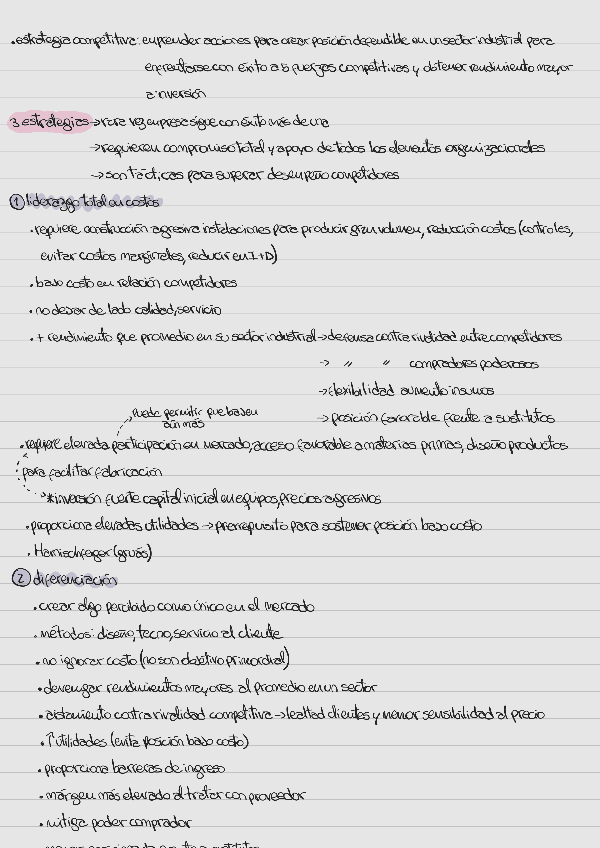 • estrategia competitiva: emprender acciones para crear posición defendible en un sector industrial para
enfrentarse con éxito a 5 fuerzas competitivas y obtener rendimiento mayor
a inversión
3 estrategias → rara vez empresa sigue con éxito más de una
→ requieren compromiso total y apoyo de todos los elementos organizacionales
→ son tácticas para superar desempeño competidores
① liderazgo total en costos
• requiere construcción agresiva instalaciones para producir gran volumen, reducción costos (controles,
evitar costos marginales, reducir en I+D)
• bajo costo en relación competidores
• no dejar de lado calidad, servicio
• + rendimiento que promedio en su sector industrial → defensa contra rivalidad entre competidores
→ " " compradores poderosos
→ flexibilidad aumento insumos
→ posición favorable frente a sustitutos
puede permitir que bajen
aún más
• requiere elevada participación en mercado, acceso favorable a materias primas, diseño productos
para facilitar fabricación
* inversión fuerte capital inicial en equipos, precios agresivos
• proporciona elevadas utilidades → prerrequisito para sostener posición bajo costo
• Harnischfeger (grúas)
② diferenciación
• crear algo percibido como único en el mercado
• métodos: diseño, tecno, servicio al cliente
• no ignorar costo (no son objetivo primordial)
• devengar rendimientos mayores al promedio en un sector
• aislamiento contra rivalidad competitiva → lealtad clientes y menor sensibilidad al precio
• ↑ utilidades (evita posición bajo costo)
• proporciona barreras de ingreso
• márgen más elevado al tratar con proveedor
• mitiga poder comprador